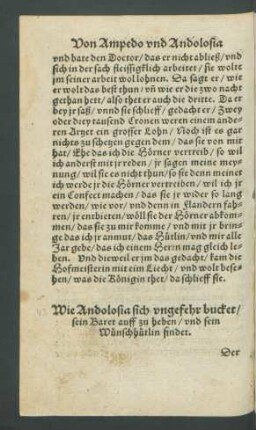 Von Ampedo vnd Andolosia
vnd bate den Doctor/ das er nicht abließ/ vnd
sich in der sach fleissigklich arbeitet/ sie wolt
jm seiner arbeit wol lohnen. Da sagt er/ wie
er wolt das best thun/ vñ wie er die zwo nacht
gethan hett/ also thet er auch die dritte. Da er
bey jr saß/ vnnd sie schlieff/ gedacht er/ Zwey
oder drey tausend Cronen weren einem ande-
ren Artzet ein grosser Lohn/ Noch ist es gar
nichts zu schetzen gegen dem/ das sie von mir
hat/ Ehe das ich die Hörner vertreib/ so wil
ich anderst mit jr reden/ jr sagen meine mey-
nung/ wil sie es nicht thun/ so sie denn meinet
ich werde jr die Hörner vertreiben/ wil ich jr
ein Confect machen/ das sie jr wider so lang
werden/ wie vor/ vnd denn in Flandern fah-
ren/ jr entbieten/ wöll sie der Hörner abkom-
men/ das sie zu mir komme/ vnd mir jr brin-
ge das ich jr anmut/ das Hütlin/ vnd mir alle
Jar gebe/ das ich einem Herrn mag gleich le-
ben. Vnd dieweil er jm das gedacht/ kam die
Hofmeisterin mit eim Liecht/ vnd wolt bese-
hen/ was die Königin thet/ da schlieff sie.
Wie Andolosia sich vngefehr bucket/
sein Baret auff zu heben/ vnd sein
Wünschhütlin findet.
Der